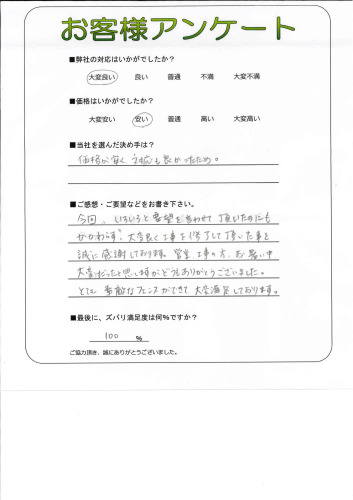 お客様アンケート
■弊社の対応はいかがでしたか？
大変良い 良い 普通 不満 大変不満
■価格はいかがでしたか？
大変安い 安い 普通 高い 大変高い
■当社を選んだ決め手は？
価格が安く対応も良かったため。
■ご感想・ご要望などをお書き下さい。
今回、いろいろと要望を言わせて頂いたのにも
かかわらず、大変良く工事を行って頂いた事を
誠に感謝しております。営業、工事の方、お暑い中
大変だったと思いますがどうもありがとうございました。
とても素敵なフェンスができて、大変満足しております。
■最後に、ズバリ満足度は何%ですか？
100 %
ご協力頂き、誠にありがとうございました。